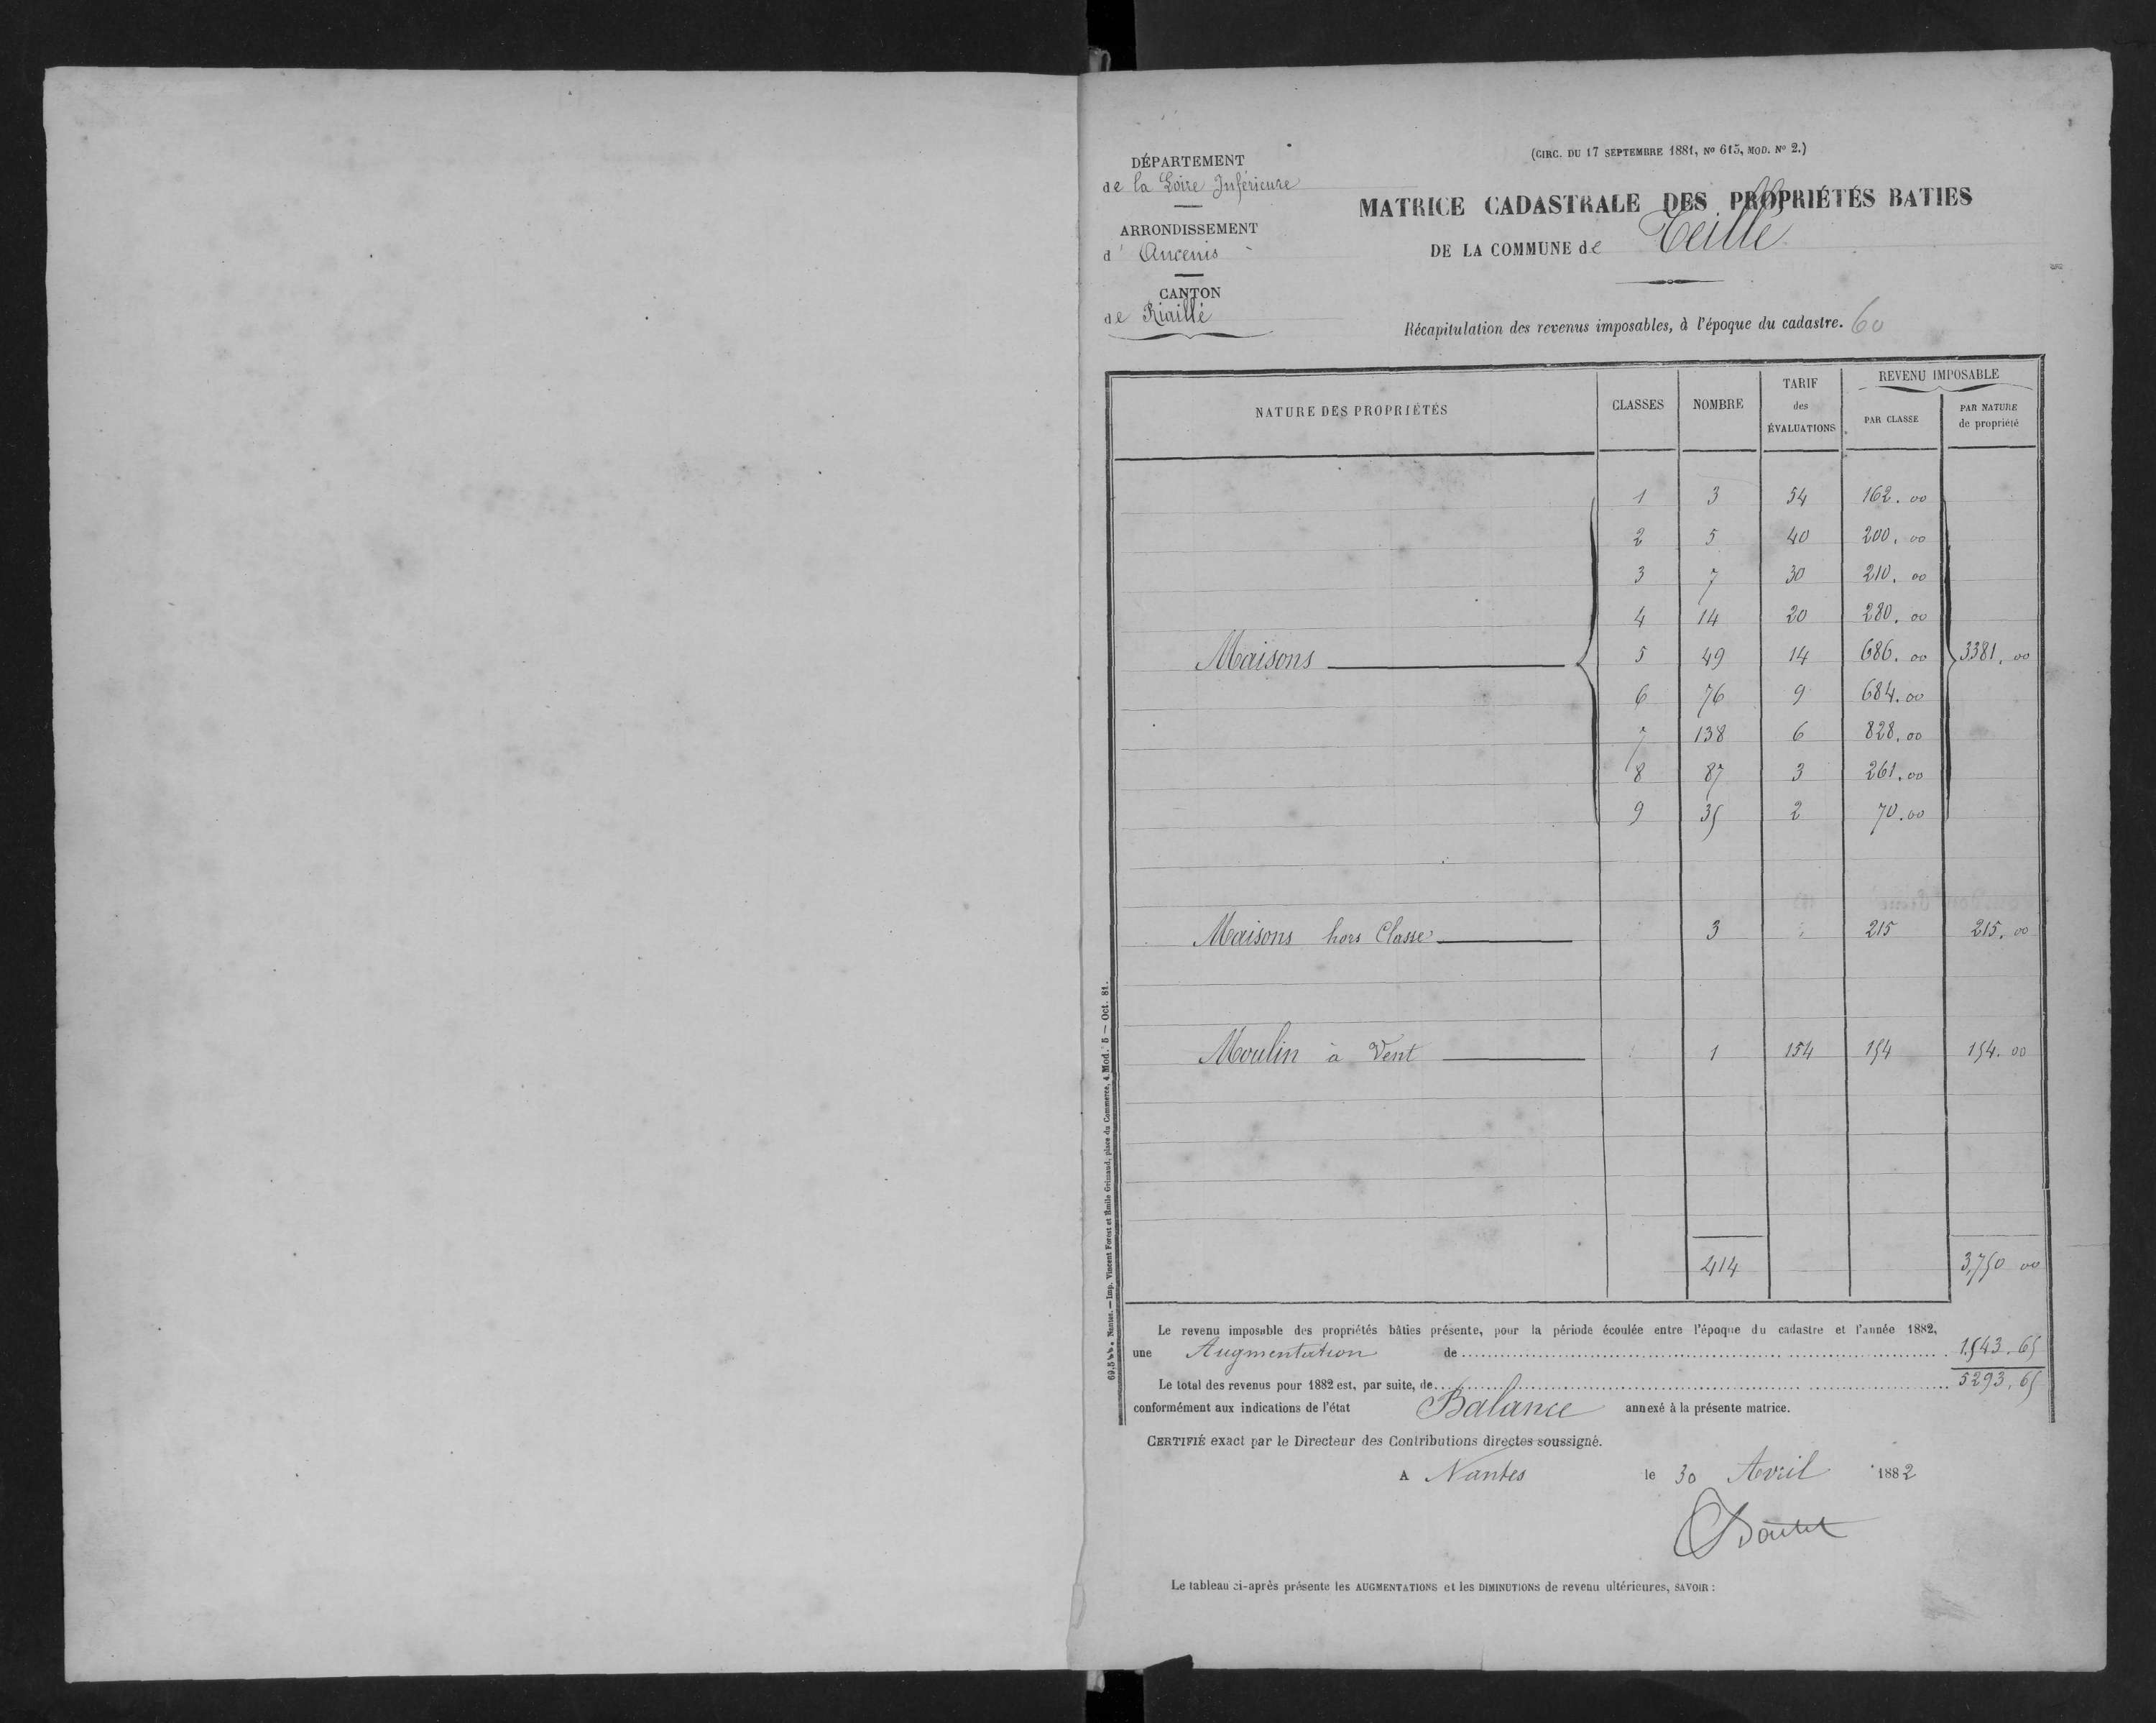 (CIRC. DU 17 SEPTEMBRE 1881, No 615, MOD. No 2.)
DÉPARTEMENT
de la Loire Inférieure
ARRONDISSEMENT
d' Ancenis
CANTON
de Riaillé
MATRICE CADASTRALE DES PROPRIÉTÉS BATIES
DE LA COMMUNE de Teillé
Récapitulation des revenus imposables, à l'époque du cadastre. 60
NATURE DES PROPRIÉTÉS CLASSES NOMBRE TARIF des ÉVALUATIONS REVENU IMPOSABLE PAR CLASSE PAR NATURE de propriété
1 3 54 162.00
2 5 40 200.00
3 7 30 210.00
4 14 20 280.00
Maisons 5 49 14 686.00 3381.00
6 76 9 684.00
7 138 6 828.00
8 87 3 261.00
9 35 2 70.00
Maisons hors Classe 3 215 215.00
Moulin à Vent 1 154 154 154.00
414 3,750 00
Le revenu imposable des propriétés bâties présente, pour la période écoulée entre l'époque du cadastre et l'année 1882,
une Augmentation de 1.543.65
Le total des revenus pour 1882 est, par suite, de 5293.65
conformément aux indications de l'état Balance annexé à la présente matrice.
CERTIFIÉ exact par le Directeur des Contributions directes soussigné.
A Nantes le 30 Avril 1882
Le tableau ci-après présente les AUGMENTATIONS et les DIMINUTIONS de revenu ultérieures, SAVOIR :
Nantes. — Imp. Vincent Forest et Emile Grimaud, place du Commerce, 4. Mod. 5 — Oct. 81.